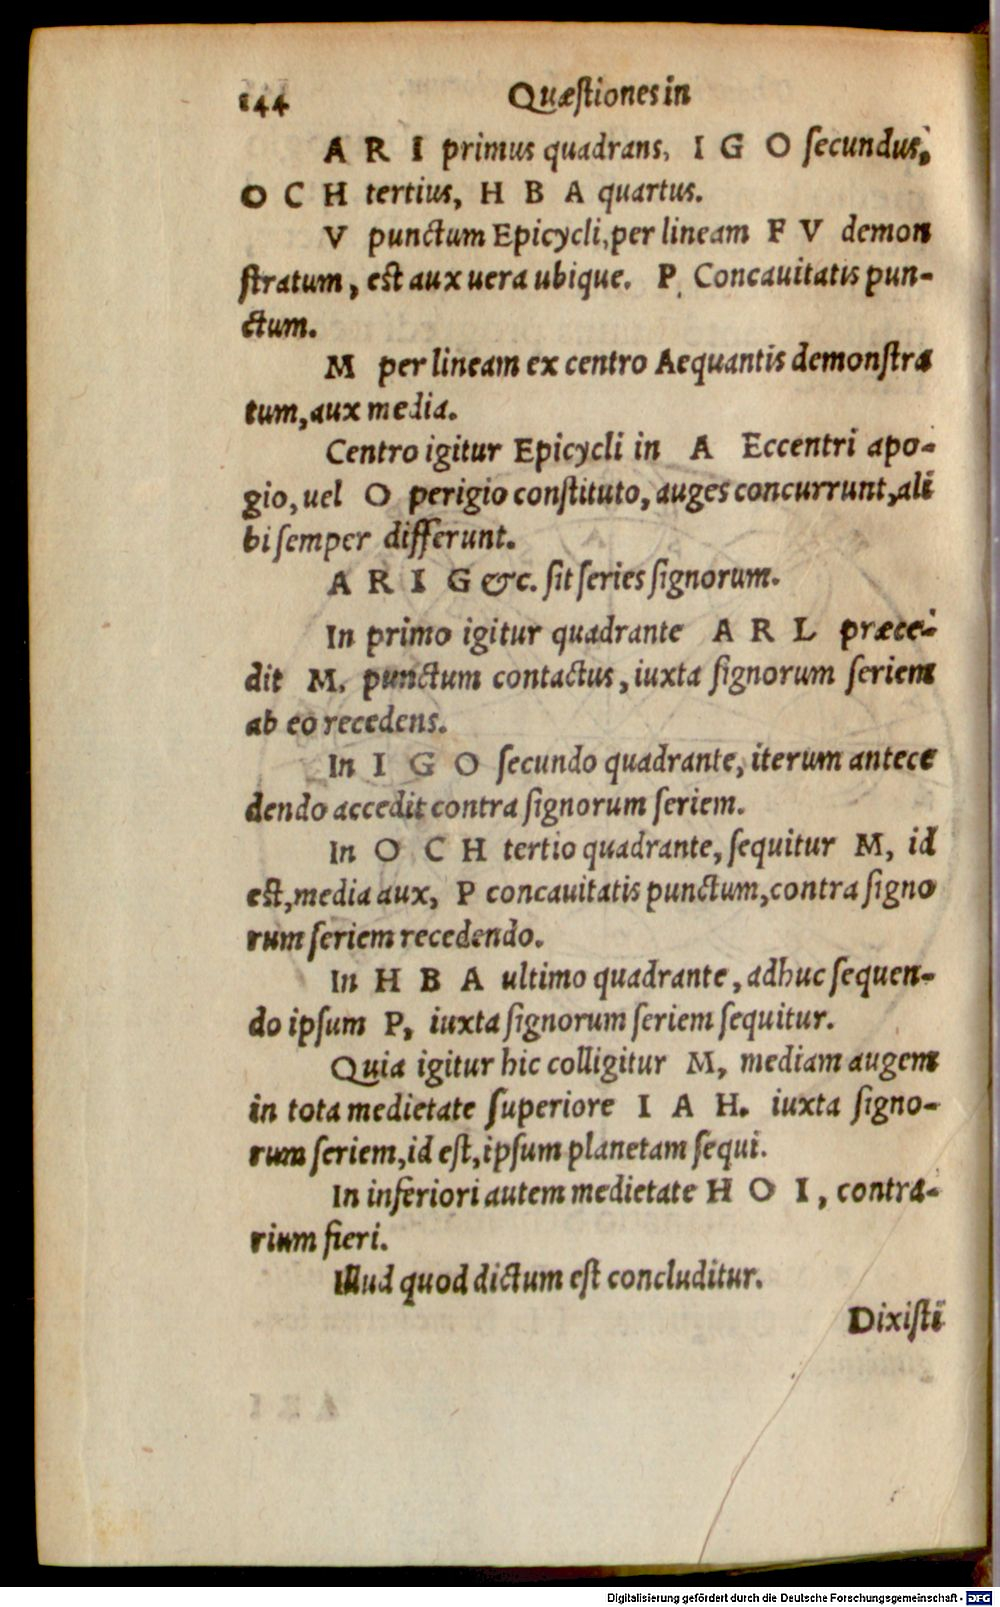 144 Quæſtiones in
A R I primus quadrans, I G O ſecundus,
O C H tertius, H B A quartus.
V punctum Epicycli, per lineam F V demon
ſtratum, eſt aux uera ubique. P. Concauitatis pun-
ctum.
M per lineam ex centro Aequantis demonſtra
tum, aux media.
Centro igitur Epicycli in A Eccentri apo-
gio, uel O perigio conſtituto, auges concurrunt, ali
bi ſemper differunt.
A R I G &c. ſit ſeries ſignorum.
In primo igitur quadrante A R L præce-
dit M. punctum contactus, iuxta ſignorum ſeriem
ab eo recedens.
In I G O ſecundo quadrante, iterum antece
dendo accedit contra ſignorum ſeriem.
In O C H tertio quadrante, ſequitur M, id
eſt, media aux, P concauitatis punctum, contra ſigno
rum ſeriem recedendo.
In H B A ultimo quadrante, adhuc ſequen-
do ipſum P, iuxta ſignorum ſeriem ſequitur.
Quia igitur hic colligitur M, mediam augem
in tota medietate ſuperiore I A H. iuxta ſigno-
rum ſeriem, id eſt, ipſum planetam ſequi.
In inferiori autem medietate H O I, contra-
rium fieri.
Illud quod dictum eſt concluditur.
Dixiſti
Digitalisierung gefördert durch die Deutsche Forschungsgemeinschaft - DFG